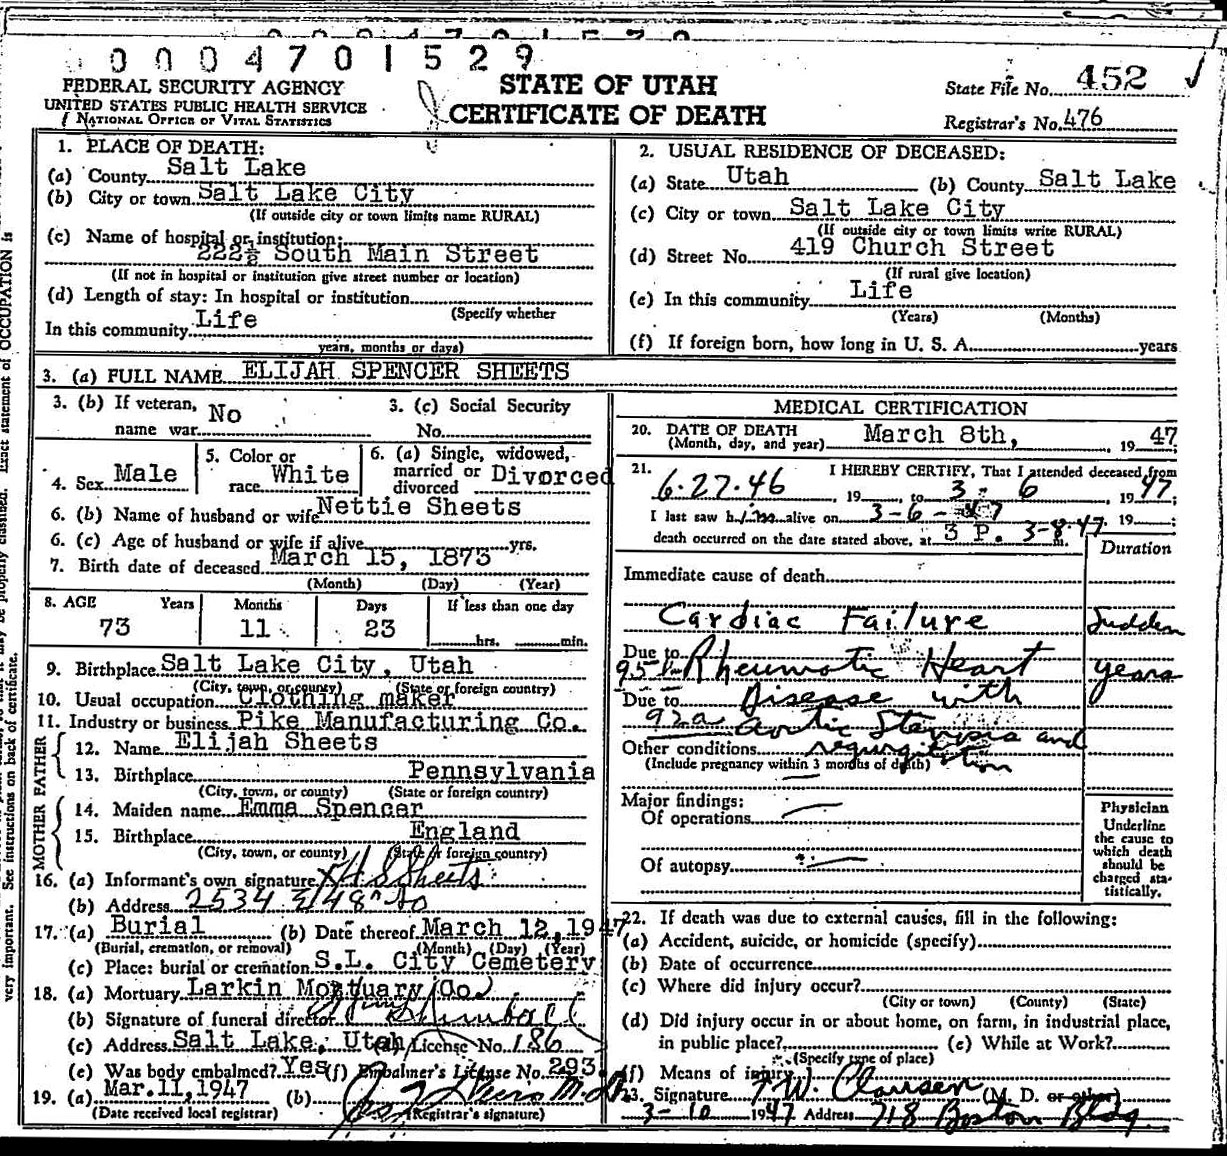 0004701529
FEDERAL SECURITY AGENCY
UNITED STATES PUBLIC HEALTH SERVICE
NATIONAL OFFICE OF VITAL STATISTICS
STATE OF UTAH
CERTIFICATE OF DEATH
State File No. 452
Registrar's No. 476
1. PLACE OF DEATH:
(a) County Salt Lake
(b) City or town Salt Lake City
(If outside city or town limits name RURAL)
(c) Name of hospital or institution:
222½ South Main Street
(If not in hospital or institution give street number or location)
(d) Length of stay: In hospital or institution
(Specify whether
In this community Life
years, months or days)
2. USUAL RESIDENCE OF DECEASED:
(a) State Utah (b) County Salt Lake
(c) City or town Salt Lake City
(If outside city or town limits write RURAL)
(d) Street No. 419 Church Street
(If rural give location)
(e) In this community Life
(Years) (Months)
(f) If foreign born, how long in U. S. A. years
3. (a) FULL NAME ELIJAH SPENCER SHEETS
3. (b) If veteran, name war No
3. (c) Social Security No.
4. Sex Male
5. Color or race White
6. (a) Single, widowed, married or divorced Divorced
6. (b) Name of husband or wife Nettie Sheets
6. (c) Age of husband or wife if alive yrs.
7. Birth date of deceased March 15, 1873
(Month) (Day) (Year)
8. AGE Years Months Days If less than one day
73 11 23 hrs. min.
9. Birthplace Salt Lake City, Utah
(City, town, or county) (State or foreign country)
10. Usual occupation Clothing maker
11. Industry or business Pike Manufacturing Co.
FATHER
12. Name Elijah Sheets
13. Birthplace Pennsylvania
(City, town, or county) (State or foreign country)
MOTHER
14. Maiden name Emma Spencer
15. Birthplace England
(City, town, or county) (State or foreign country)
16. (a) Informant's own signature Sheets
(b) Address 2534
17. (a) Burial (b) Date thereof March 12, 1947
(Burial, cremation, or removal) (Month) (Day) (Year)
(c) Place: burial or cremation S.L. City Cemetery
18. (a) Mortuary Larkin Mortuary Co
(b) Signature of funeral director
(c) Address Salt Lake, Utah (d) License No. 186
(e) Was body embalmed? Yes (f) Embalmer's License No. 293
19. (a) Mar.11,1947 (b)
(Date received local registrar) (Registrar's signature)
MEDICAL CERTIFICATION
20. DATE OF DEATH
(Month, day, and year) March 8th, 1947
21. I HEREBY CERTIFY, That I attended deceased from
6-27-46, 19 , to 3-6, 1947;
I last saw him alive on 3-6-47, 19 ;
death occurred on the date stated above, at 3 P. m. 3-8-47
Duration
Immediate cause of death
Cardiac Failure Sudden
Due to 95b Rheumatic Heart years
Due to Disease with
92a aortic Stenosis and
Other conditions regurgitation
(Include pregnancy within 3 months of death)
Major findings:
Of operations
Of autopsy
Physician
Underline
the cause to
which death
should be
charged sta-
tistically.
22. If death was due to external causes, fill in the following:
(a) Accident, suicide, or homicide (specify)
(b) Date of occurrence
(c) Where did injury occur?
(City or town) (County) (State)
(d) Did injury occur in or about home, on farm, in industrial place,
in public place? (e) While at Work?
(Specify type of place)
(f) Means of injury
23. Signature W. Clausen (M. D. or other)
3-10 1947 Address 718 Boston Bldg.
very important. See instructions on back of certificate. Exact statement of OCCUPATION is